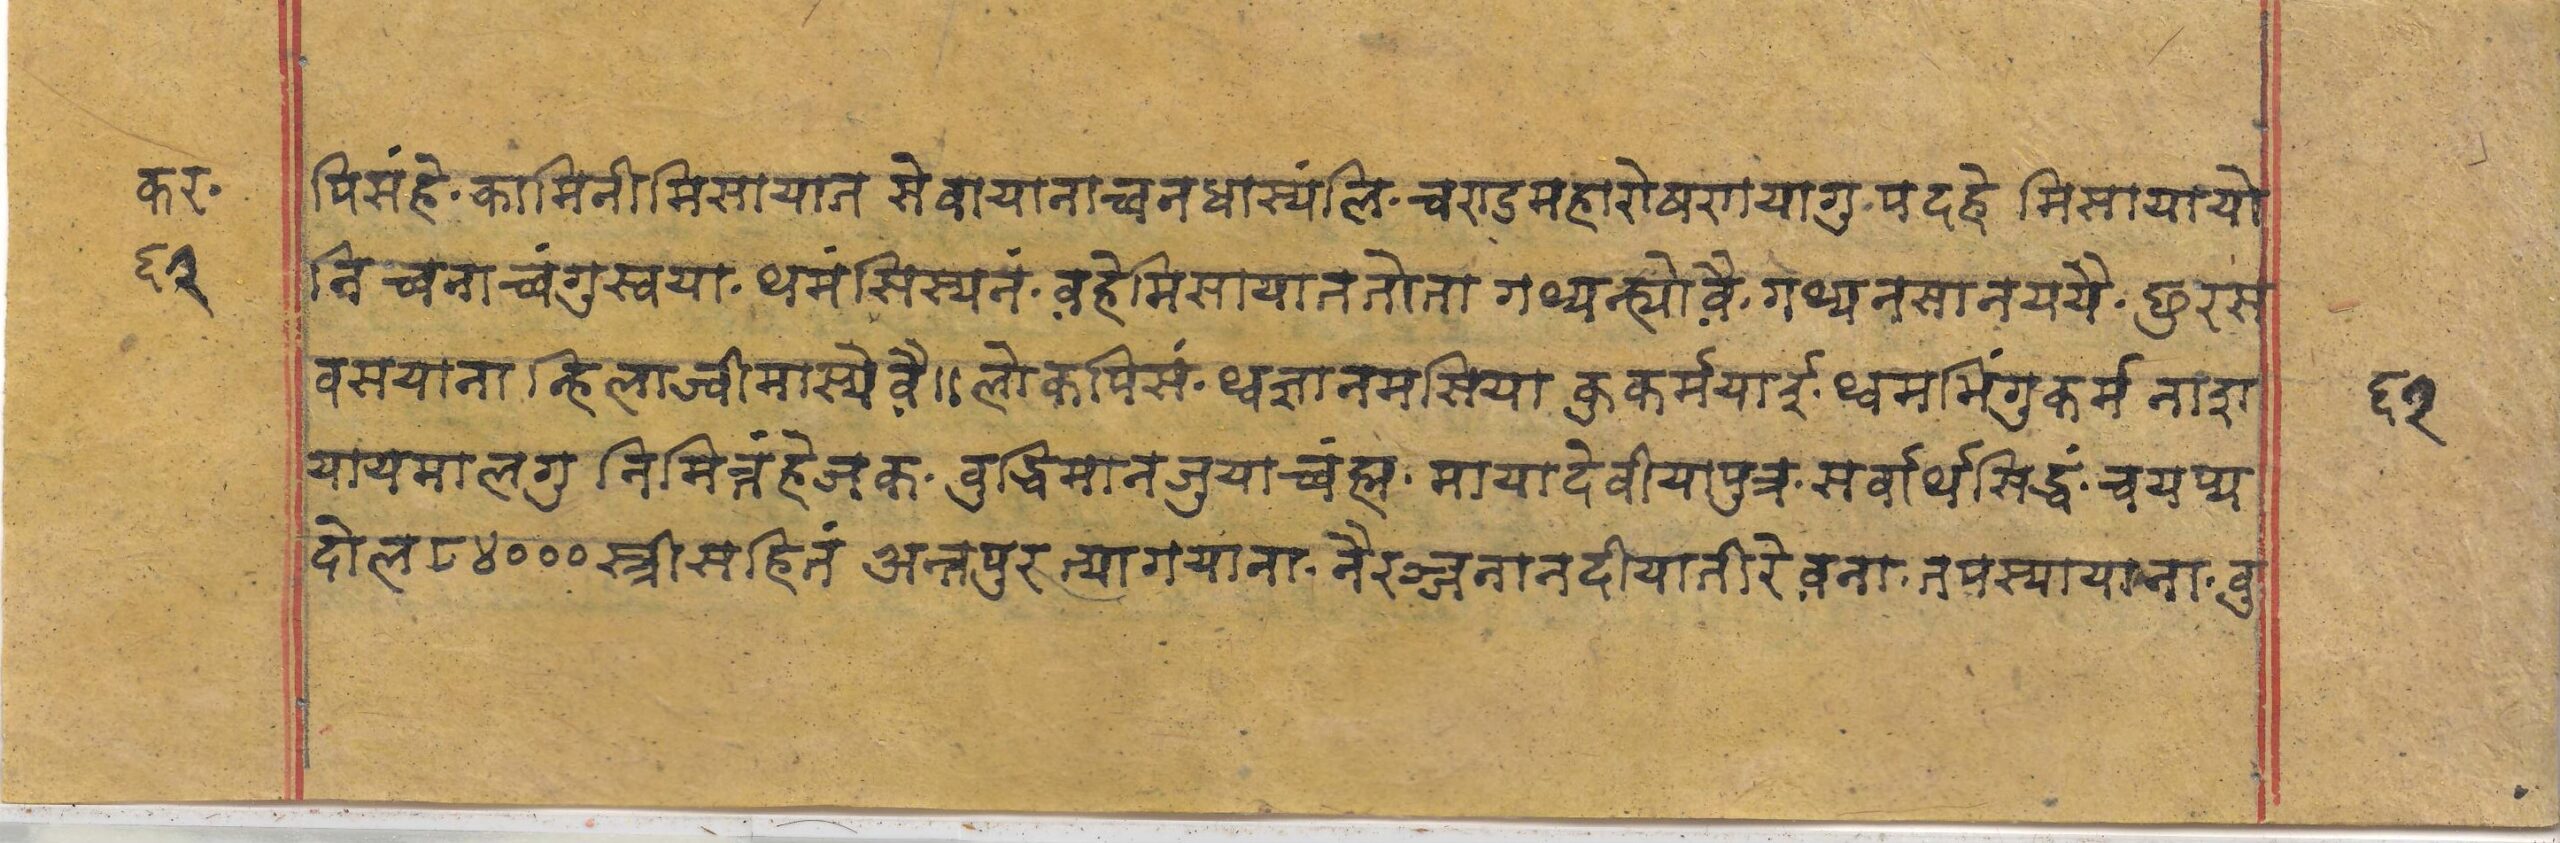 कर·
६२
पिसंहे·कामिनीमिसायात सेवायानाच्वनधास्यंलि·चण्डमहारोषणयागु·पदहे मिसायायो
नि च्वनाच्वंगुस्वया·थमंसिस्यनं·व़हेमिसायाततोता गथ्यन्ह्यो व़ै·गथ्यनसानययै·छुरस
वसयाना न्हिलाज्वीमास्येव़ै॥लोकपिसं·थ्वज्ञानमसिया कुकर्मयाई·थ्वमभिंगुकर्म नाश
यायमालगु निमित्तंहेजक·वुद्धिमानजुयाच्वंह्म·मायादेवीयापुत्र·सर्वार्थसिद्धं·च्यप्य
दोल८४०००स्त्रीसहितं अन्तपुर त्यागयाना·नैरञ्जनानदीयातीरे व़ना·तपस्यायाना·वु
६२